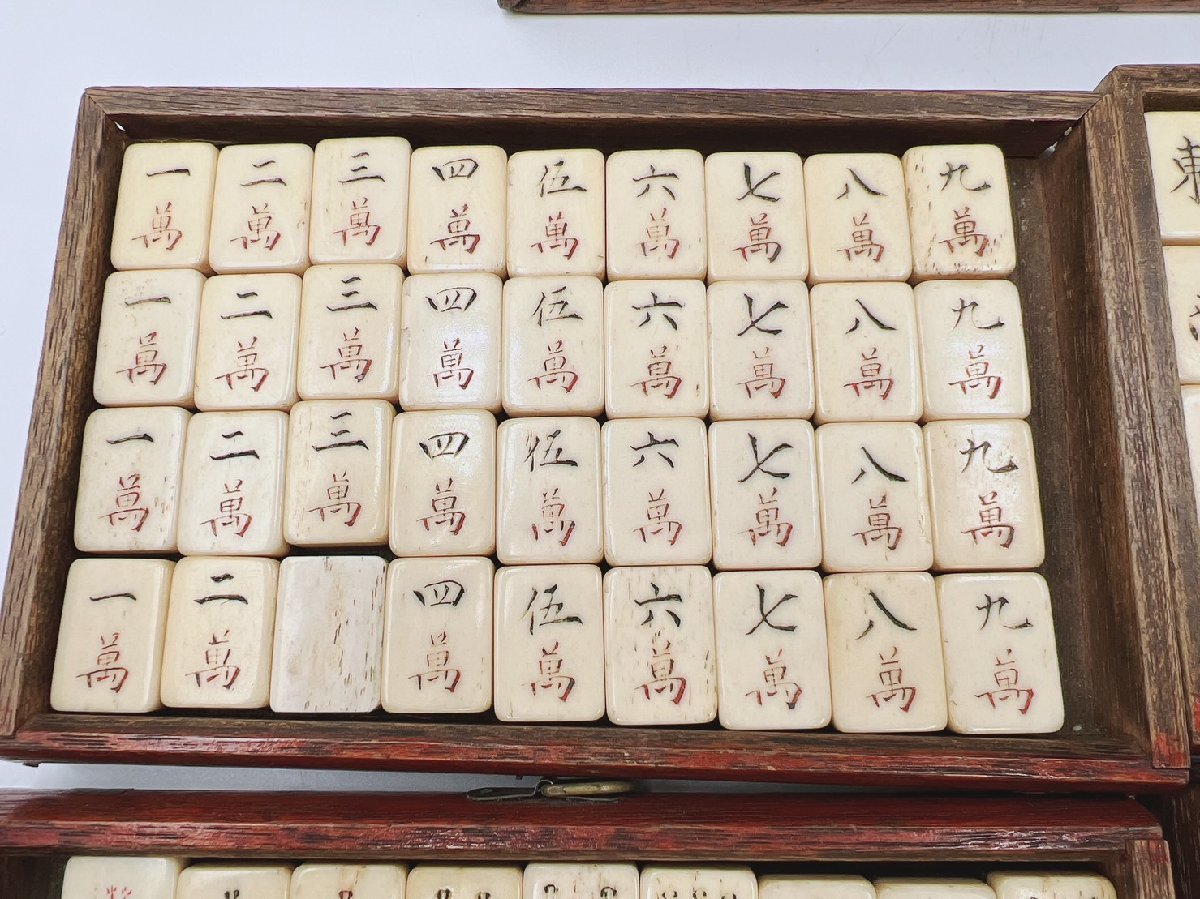 一 二 三 四 伍 六 七 八 九
萬 萬 萬 萬 萬 萬 萬 萬 萬
一 二 三 四 伍 六 七 八 九
萬 萬 萬 萬 萬 萬 萬 萬 萬
一 二 三 四 伍 六 七 八 九
萬 萬 萬 萬 萬 萬 萬 萬 萬
一 二 四 伍 六 七 八 九
萬 萬 萬 萬 萬 萬 萬 萬
東